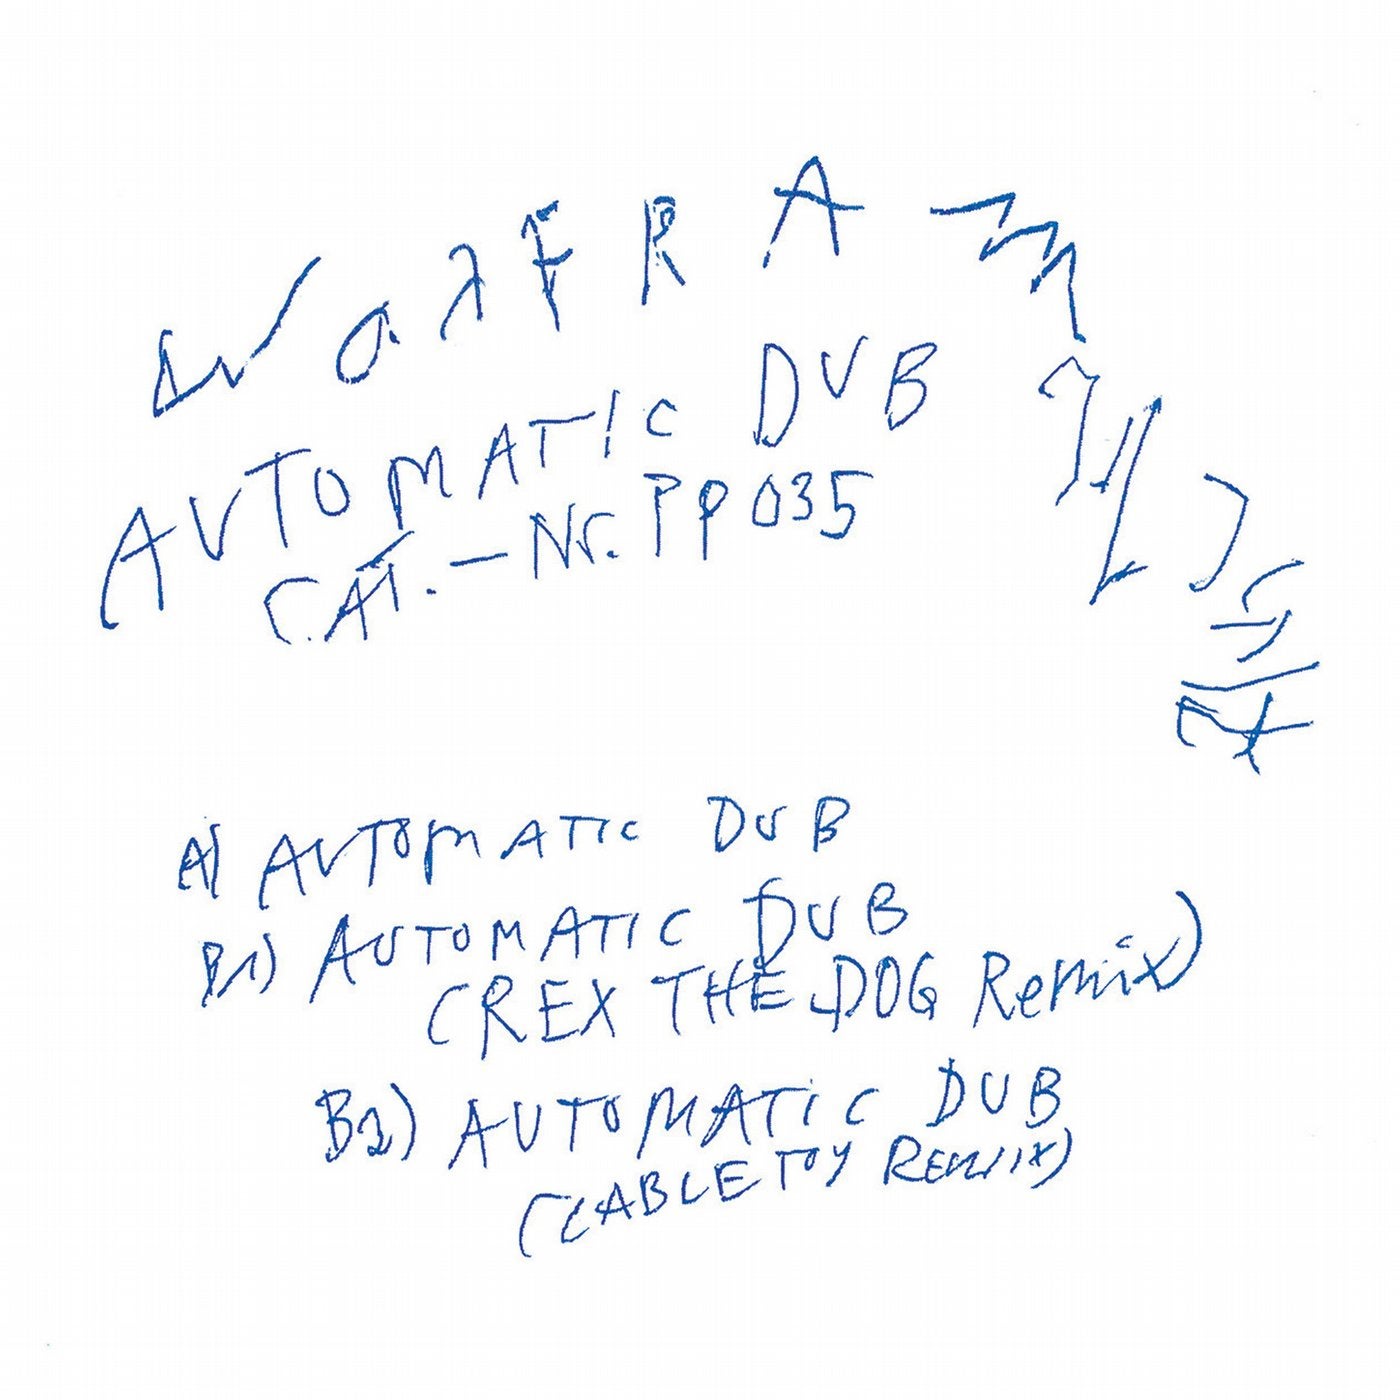 WolFRAm
AUTOMATIC DUB
CAT.-Nr. PP035
A) AUTOMATIC DUB
B1) AUTOMATIC DUB
(REX THE DOG Remix)
B2) AUTOMATiC DUB
(CABLETOY REMIX)